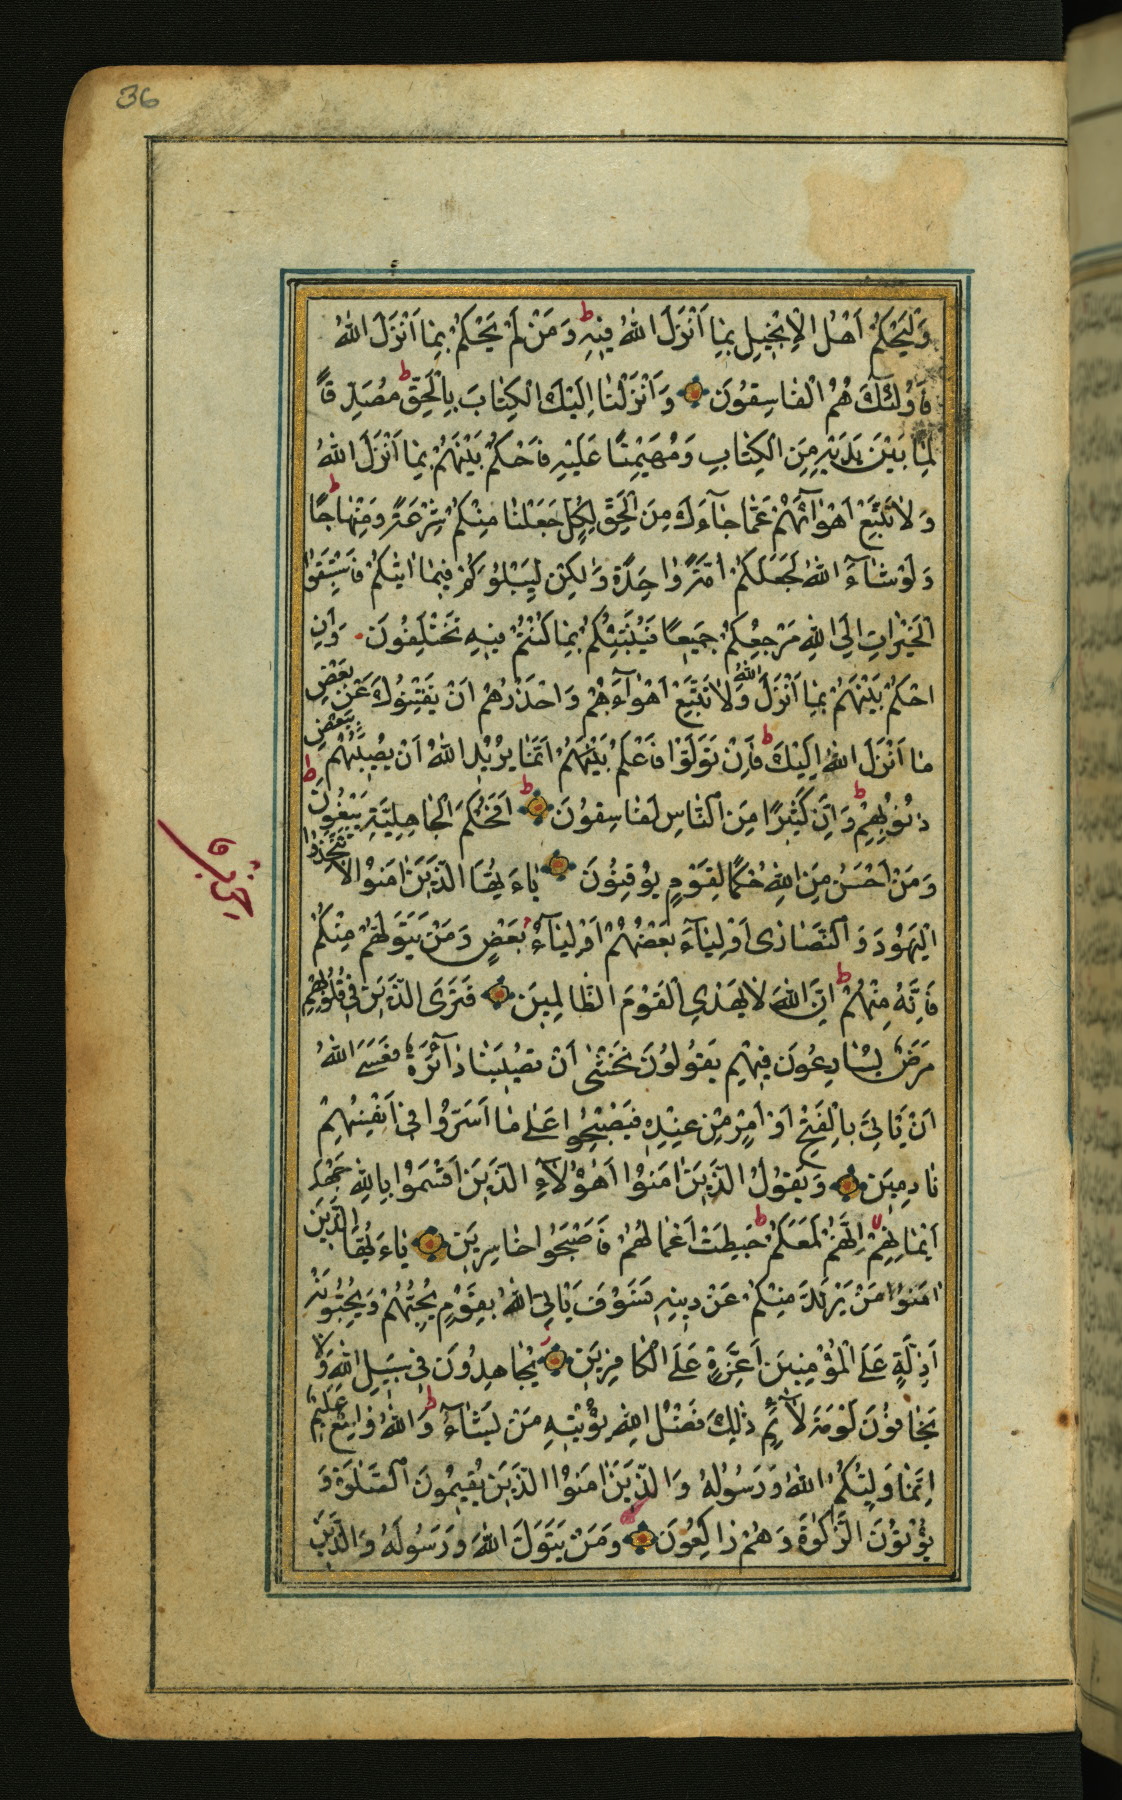 36
وَلْيَحْكُمْ اَهْلُ الْاِنْجٖيلِ بِمٰا اَنْزَلَ اللّٰهُ فٖيهِ ط وَمَنْ لَمْ يَحْكُمْ بِمٰا اَنْزَلَ اللّٰهُ
فَاُولٰئِكَ هُمُ الْفٰاسِقُونَ وَاَنْزَلْنٰا اِلَيْكَ الْكِتٰابَ بِالْحَقِّ ط مُصَدِّقًا
لِمٰا بَيْنَ يَدَيْهِ مِنَ الْكِتٰابِ وَمُهَيْمِنًا عَلَيْهِ فَاحْكُمْ بَيْنَهُمْ بِمٰا اَنْزَلَ اللّٰهُ
وَلٰا تَتَّبِعْ اَهْوٰآئَهُمْ عَمّٰا جٰآءَكَ مِنَ الْحَقِّ لِكُلٍّ جَعَلْنٰا مِنْكُمْ شِرْعَةً وَمِنْهٰاجًا ط
وَلَوْ شٰآءَ اللّٰهُ لَجَعَلَكُمْ اُمَّةً وٰاحِدَةً وَلٰكِنْ لِيَبْلُوَكُمْ فٖيمٰا اٰتٰيكُمْ فَاسْتَبِقُوا
الْخَيْرٰاتِ اِلَى اللّٰهِ مَرْجِعُكُمْ جَمٖيعًا فَيُنَبِّئُكُمْ بِمٰا كُنْتُمْ فٖيهِ تَخْتَلِفُونَ وَاَنِ
احْكُمْ بَيْنَهُمْ بِمٰا اَنْزَلَ اللّٰهُ وَلٰا تَتَّبِعْ اَهْوٰآءَهُمْ وَاحْذَرْهُمْ اَنْ يَفْتِنُوكَ عَنْ بَعْضِ
مٰا اَنْزَلَ اللّٰهُ اِلَيْكَ ط فَاِنْ تَوَلَّوْا فَاعْلَمْ بَيْنَهُمْ اَنَّمٰا يُرٖيدُ اللّٰهُ اَنْ يُصٖيبَهُمْ بِبَعْضِ
ذُنُوبِهِمْ ط وَاِنَّ كَثٖيرًا مِنَ النّٰاسِ لَفٰاسِقُونَ ط اَفَحُكْمَ الْجٰاهِلِيَّةِ يَبْغُونَ ط
وَمَنْ اَحْسَنُ مِنَ اللّٰهِ حُكْمًا لِقَوْمٍ يُوقِنُونَ يٰاءَيُّهَا الَّذٖينَ اٰمَنُوا لٰا تَتَّخِذُوا
الْيَهُودَ وَالنَّصٰارٰى اَوْلِيٰآءَ بَعْضُهُمْ اَوْلِيٰآءُ بَعْضٍ وَمَنْ يَتَوَلَّهُمْ مِنْكُمْ
فَاِنَّهُ مِنْهُمْ ط اِنَّ اللّٰهَ لٰا يَهْدِي الْقَوْمَ الظّٰالِمٖينَ فَتَرَى الَّذٖينَ فٖي قُلُوبِهِمْ
مَرَضٌ يُسٰارِعُونَ فٖيهِمْ يَقُولُونَ نَخْشٰى اَنْ تُصٖيبَنٰا دٰآئِرَةٌ فَعَسَى اللّٰهُ
اَنْ يَاْتِيَ بِالْفَتْحِ اَوْ اَمْرٍ مِنْ عِنْدِهِ فَيُصْبِحُوا عَلٰى مٰا اَسَرُّوا فٖي اَنْفُسِهِمْ
نٰادِمٖينَ وَيَقُولُ الَّذٖينَ اٰمَنُوا اَهٰؤُلٰآءِ الَّذٖينَ اَقْسَمُوا بِاللّٰهِ جَهْدَ
اَيْمٰانِهِمْ اِنَّهُمْ لَمَعَكُمْ ط حَبِطَتْ اَعْمٰالُهُمْ فَاَصْبَحُوا خٰاسِرٖينَ يٰاءَيُّهَا الَّذٖينَ
اٰمَنُوا مَنْ يَرْتَدَّ مِنْكُمْ عَنْ دٖينِهِ فَسَوْفَ يَاْتِي اللّٰهُ بِقَوْمٍ يُحِبُّهُمْ وَيُحِبُّونَهُ
اَذِلَّةٍ عَلَى الْمُؤْمِنٖينَ اَعِزَّةٍ عَلَى الْكٰافِرٖينَ يُجٰاهِدُونَ فٖي سَبٖيلِ اللّٰهِ وَلٰا
يَخٰافُونَ لَوْمَةَ لٰآئِمٍ ذٰلِكَ فَضْلُ اللّٰهِ يُؤْتٖيهِ مَنْ يَشٰآءُ ط وَاللّٰهُ وٰاسِعٌ عَلٖيمٌ
اِنَّمٰا وَلِيُّكُمُ اللّٰهُ وَرَسُولُهُ وَالَّذٖينَ اٰمَنُوا الَّذٖينَ يُقٖيمُونَ الصَّلٰوةَ وَ
يُؤْتُونَ الزَّكٰوةَ وَهُمْ رٰاكِعُونَ وَمَنْ يَتَوَلَّ اللّٰهَ وَرَسُولَهُ وَالَّذٖينَ